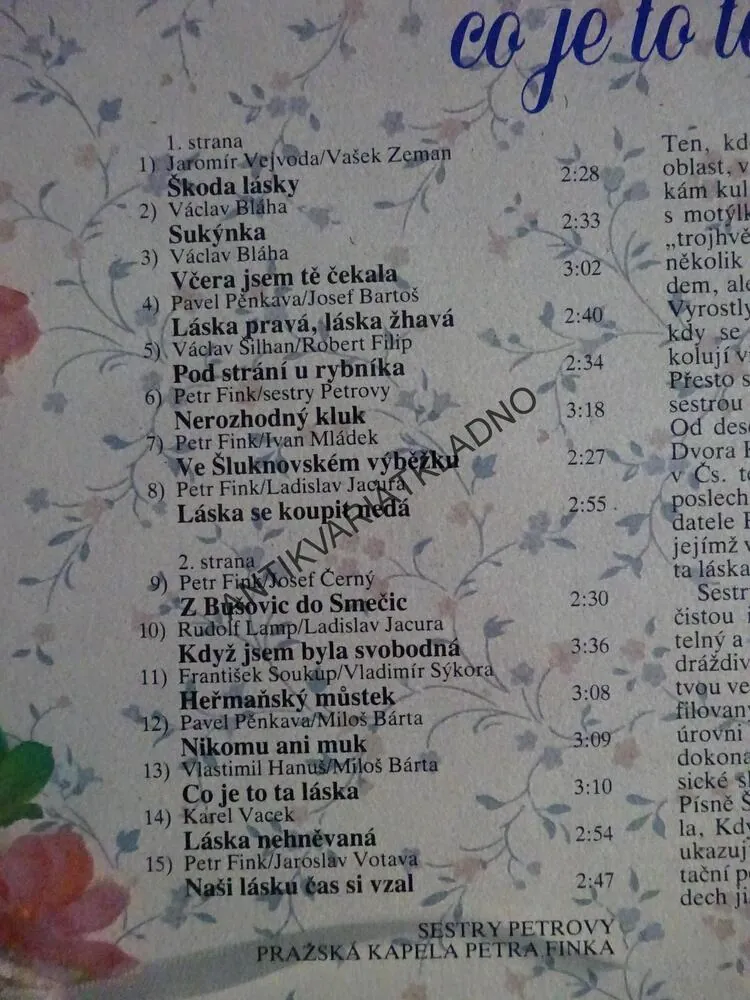 co je to t
1. strana
1) Jaromír Vejvoda/Vašek Zeman
Škoda lásky 2:28
2) Václav Bláha
Sukýnka 2:33
3) Václav Bláha
Včera jsem tě čekala 3:02
4) Pavel Pěnkava/Josef Bartoš
Láska pravá, láska žhavá 2:40
5) Václav Šilhan/Robert Filip
Pod strání u rybníka 2:34
6) Petr Fink/sestry Petrovy
Nerozhodný kluk 3:18
7) Petr Fink/Ivan Mládek
Ve Šluknovském výběžku 2:27
8) Petr Fink/Ladislav Jacura
Láska se koupit nedá 2:55
2. strana
9) Petr Fink/Josef Černý
Z Bušovic do Smečic 2:30
10) Rudolf Lamp/Ladislav Jacura
Když jsem byla svobodná 3:36
11) František Soukup/Vladimír Sýkora
Heřmaňský můstek 3:08
12) Pavel Pěnkava/Miloš Bárta
Nikomu ani muk 3:09
13) Vlastimil Hanuš/Miloš Bárta
Co je to ta láska 3:10
14) Karel Vacek
Láska nehněvaná 2:54
15) Petr Fink/Jaroslav Votava
Naši lásku čas si vzal 2:47
SESTRY PETROVY
PRAŽSKÁ KAPELA PETRA FINKA
Ten, kd
oblast, v
kám kul
s motýlk
„trojhvě
několik
dem, ale
Vyrostly
kdy se
kolují v
Přesto s
sestrou
Od dese
Dvora
v Čs. t
poslech
datele
jejímž v
ta láska
Sestr
čistou
telný a
dráždiv
tvou ve
filovan
úrovni
dokona
sické s
Písně Š
la, Kdy
ukazuj
tační p
dech ji
ANTIKVARIAT KLADNO